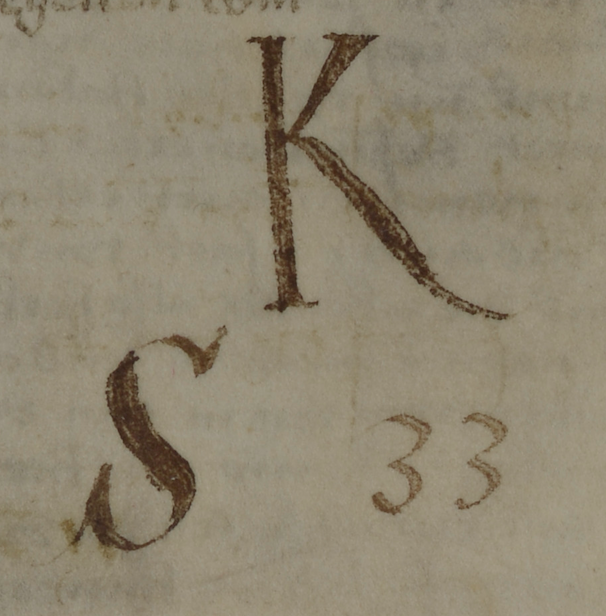 K
S 33